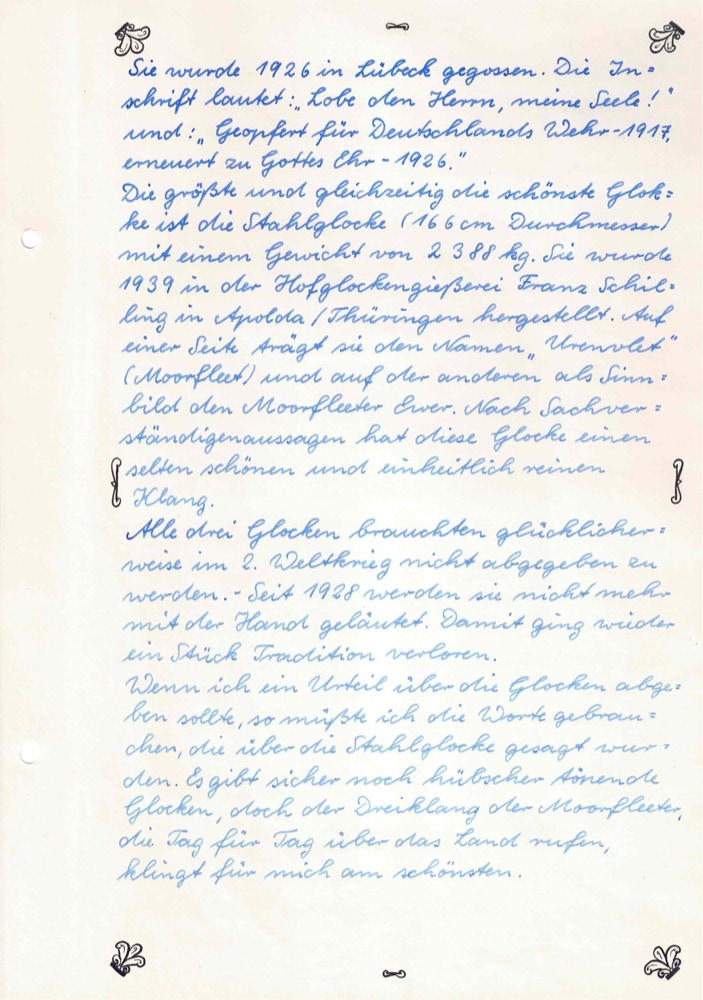 Sie wurde 1926 in Lübeck gegossen. Die In=
schrift lautet: „Lobe den Herrn, meine Seele!"
und: „Geopfert für Deutschlands Wehr-1917,
erneuert zu Gottes Ehr - 1926."
Die größte und gleichzeitig die schönste Glok=
ke ist die Stahlglocke (166 cm Durchmesser)
mit einem Gewicht von 2 388 kg. Sie wurde
1939 in der Hofglockengießerei Franz Schil=
ling in Apolda / Thüringen hergestellt. Auf
einer Seite trägt sie den Namen „Urenvlet"
(Moorfleet) und auf der anderen als Sinn=
bild den Moorfleeter Ewer. Nach Sachver=
ständigenaussagen hat diese Glocke einen
selten schönen und einheitlich reinen
Klang.
Alle drei Glocken brauchten glücklicher=
weise im 2. Weltkrieg nicht abgegeben zu
werden. - Seit 1928 werden sie nicht mehr
mit der Hand geläutet. Damit ging wieder
ein Stück Tradition verloren.
Wenn ich ein Urteil über die Glocken abge=
ben sollte, so müßte ich die Worte gebrau=
chen, die über die Stahlglocke gesagt wur=
den. Es gibt sicher noch hübscher tönende
Glocken, doch der Dreiklang der Moorfleeter,
die Tag für Tag über das Land rufen,
klingt für mich am schönsten.